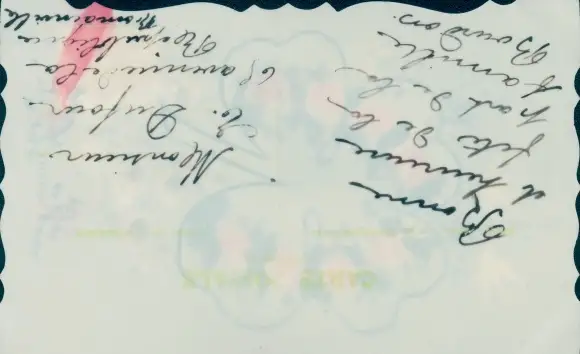 Bonne
et heureuse
fête De la
part De la
famille
Bourdon.
Monsieur
Dufour
avenue de la
République
Romainville